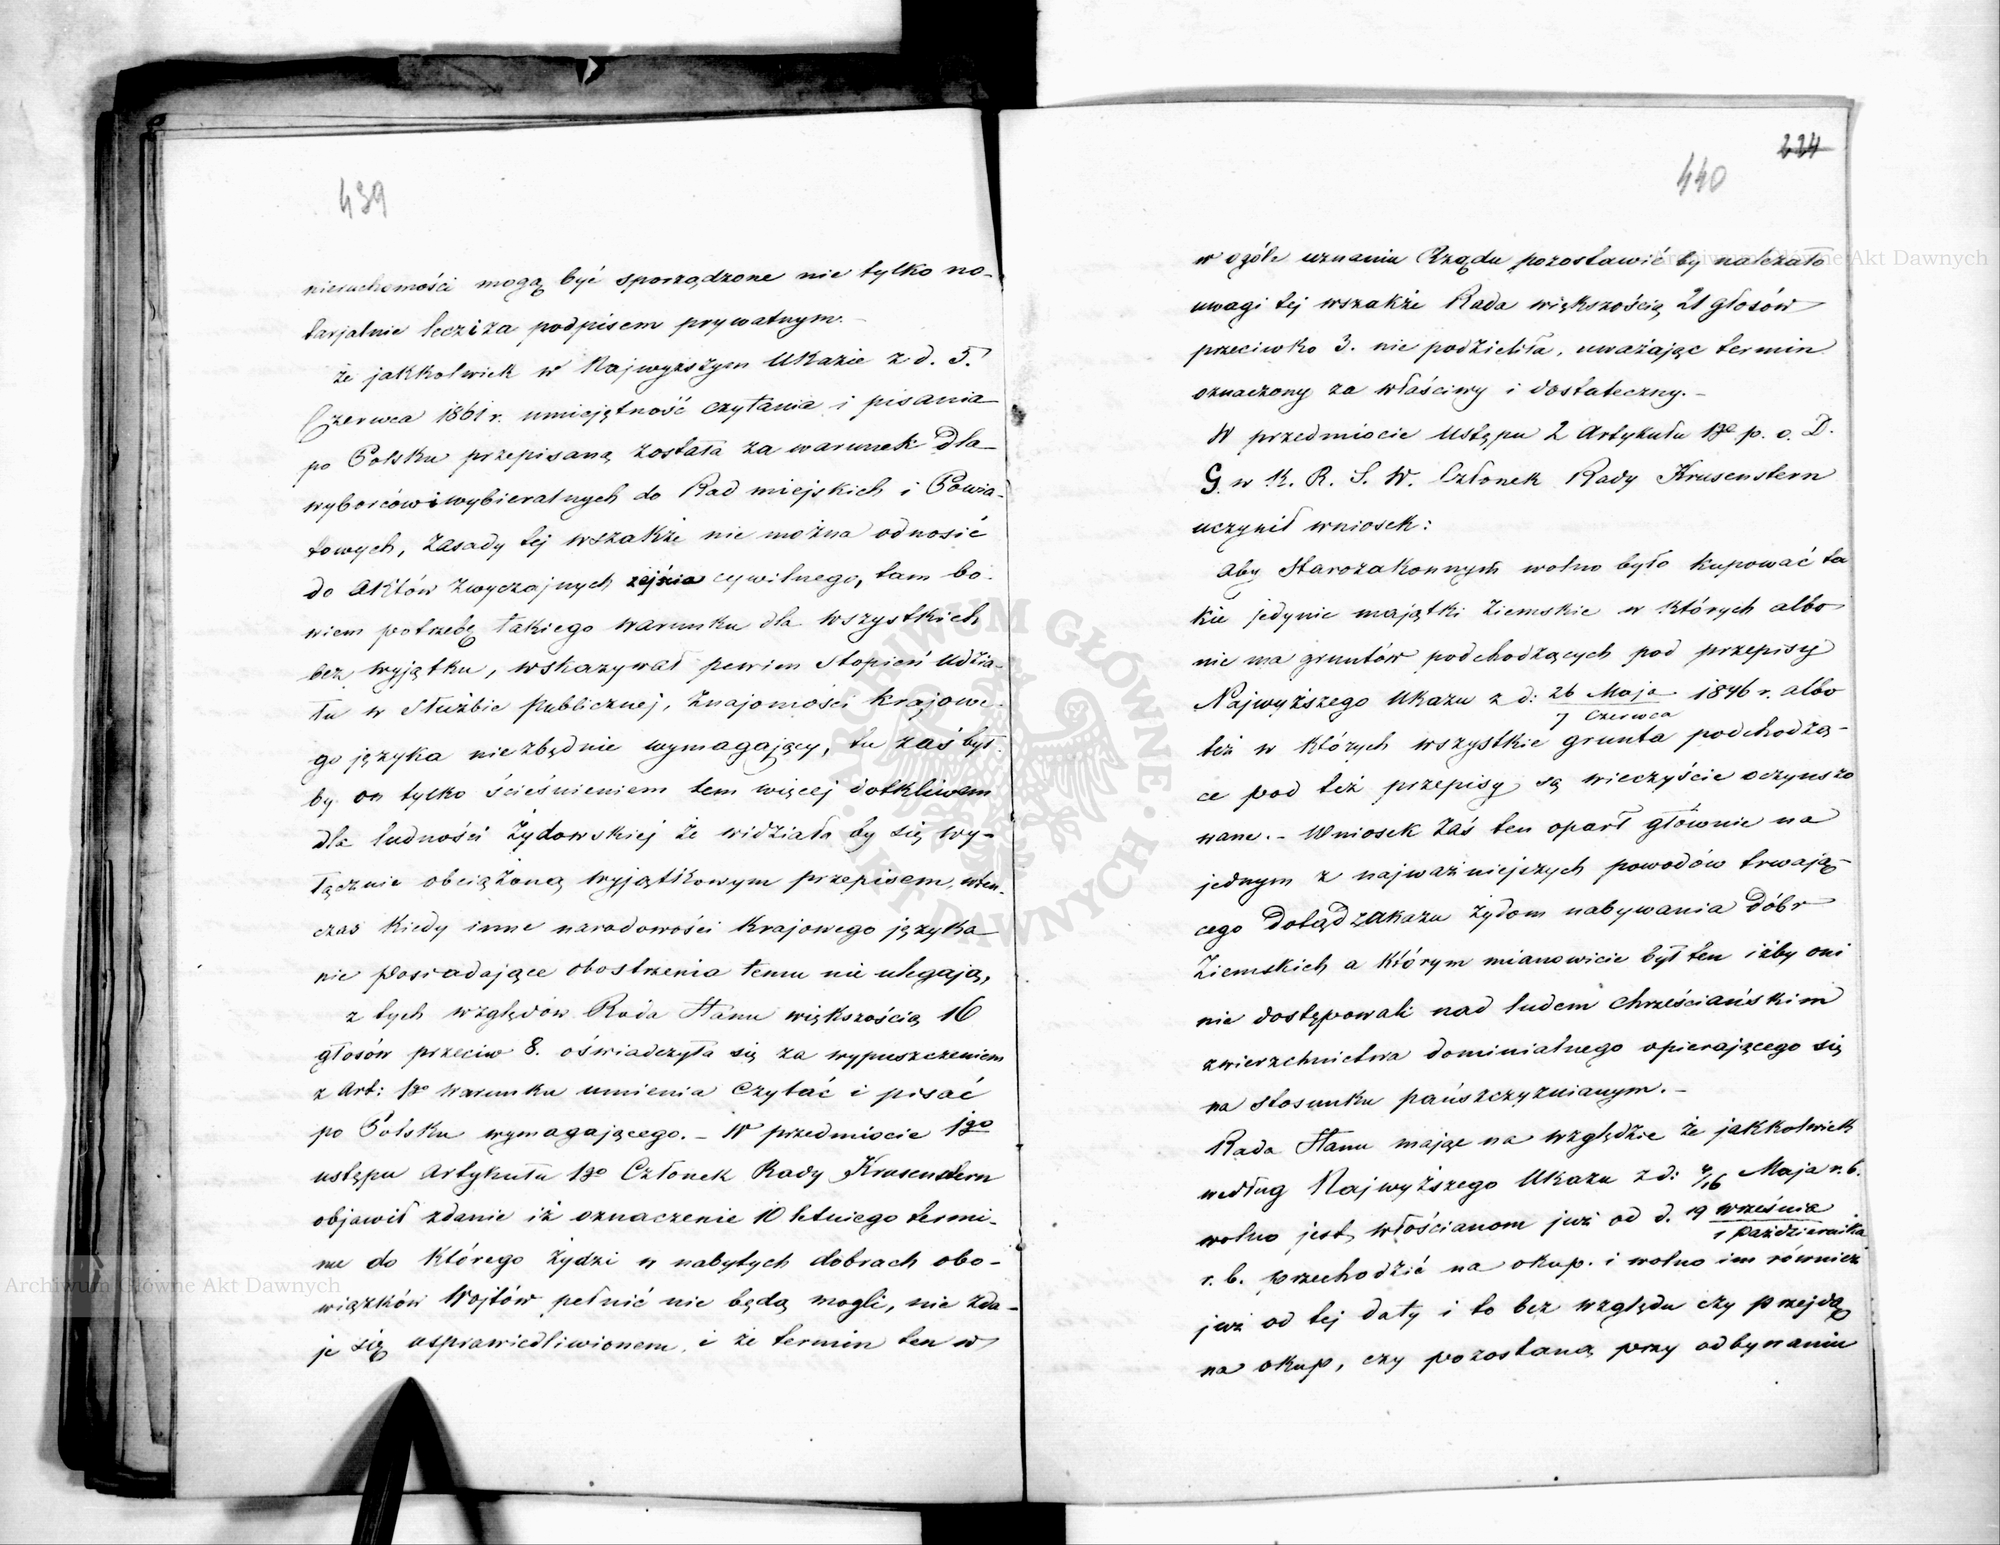 439
nieruchomości mogą być sporządzone nie tylko no-
tarjalnie lecz i za podpisem prywatnym. -
że jakkolwiek w Najwyższym Ukazie z d. 5.
Czerwca 1861 r. umiejętność czytania i pisania
po Polsku przepisaną została za warunek dla
wyborców i wybieralnych do Rad miejskich i Powia-
towych, zasady tej wszakże nie można odnosić
do aktów zwyczajnych cywilnego, tam bo-
wiem potrzebę takiego warunku dla wszystkich
bez wyjątku, wskazywał pewien Stopień udzia-
łu w Służbie publicznej, znajomości krajowe-
go języka niezbędnie wymagający, tu zaś był-
by on tylko ścieśnieniem tem więcej dotkliwem
dla ludności Żydowskiej że widziała by się wy-
łącznie obciążoną wyjątkowym przepisem, wten-
czas kiedy inne narodowości krajowego języka
nie posiadające obostrzenia temu nie ulegają,
z tych względów Rada Stanu większością 16
głosów przeciw 8. oświadczyła się za wypuszczeniem
z Art: 1go warunku umienia czytać i pisać
po Polsku wymagającego. - W przedmiocie 1go
ustępu Artykułu 1go Członek Rady Krusenstern
objawił zdanie iż oznaczenie 10 letniego termi-
nu do którego żydzi w nabytych dobrach obo-
wiązków Wojtów pełnić nie będą mogli, nie zda-
je się usprawiedliwionem, i że termin ten w
224
440
w ogóle uznaniu Rządu pozostawić by należało
uwagi tej wszakże Rada większością 21 głosów
przeciwko 3. nie podzieliła, uważając termin
oznaczony za właściwy i dostateczny. -
W przedmiocie Ustępu 2 Artykułu 1go p. o. D.
G. w K. R. S. W. Członek Rady Krusenstern
uczynił wniosek:
Aby Starozakonnym wolno było kupować ta
kie jedynie majątki Ziemskie w których albo
nie ma gruntów podchodzących pod przepisy
Najwyższego Ukazu z d: 26 Maja 1846 r. albo
7 Czerwca
też w których wszystkie grunta podchodzą-
ce pod też przepisy są wieczyście oczynszo
wane. - Wniosek zaś ten oparł głównie na
jednym z najważniejszych powodów trwają-
cego dotąd zakazu żydom nabywania Dóbr
Ziemskich a którym mianowicie był ten iżby oni
nie dostępowali nad ludem chrześciańskim
zwierzchnictwa dominialnego opierającego się
na stosunku pańszczyznianym. -
Rada Stanu mając na względzie że jakkolwiek
według Najwyższego Ukazu z d: 4/16 Maja r. b.
wolno jest włościanom już od d. 19 września
1 Października
r. b. przechodzić na okup. i wolno im również
już od tej daty i to bez względu czy przejdą
na okup, czy pozostaną przy odbywaniu
Archiwum Główne Akt Dawnych
Archiwum Główne Akt Dawnych
ARCHIWUM GŁÓWNE AKT DAWNYCH